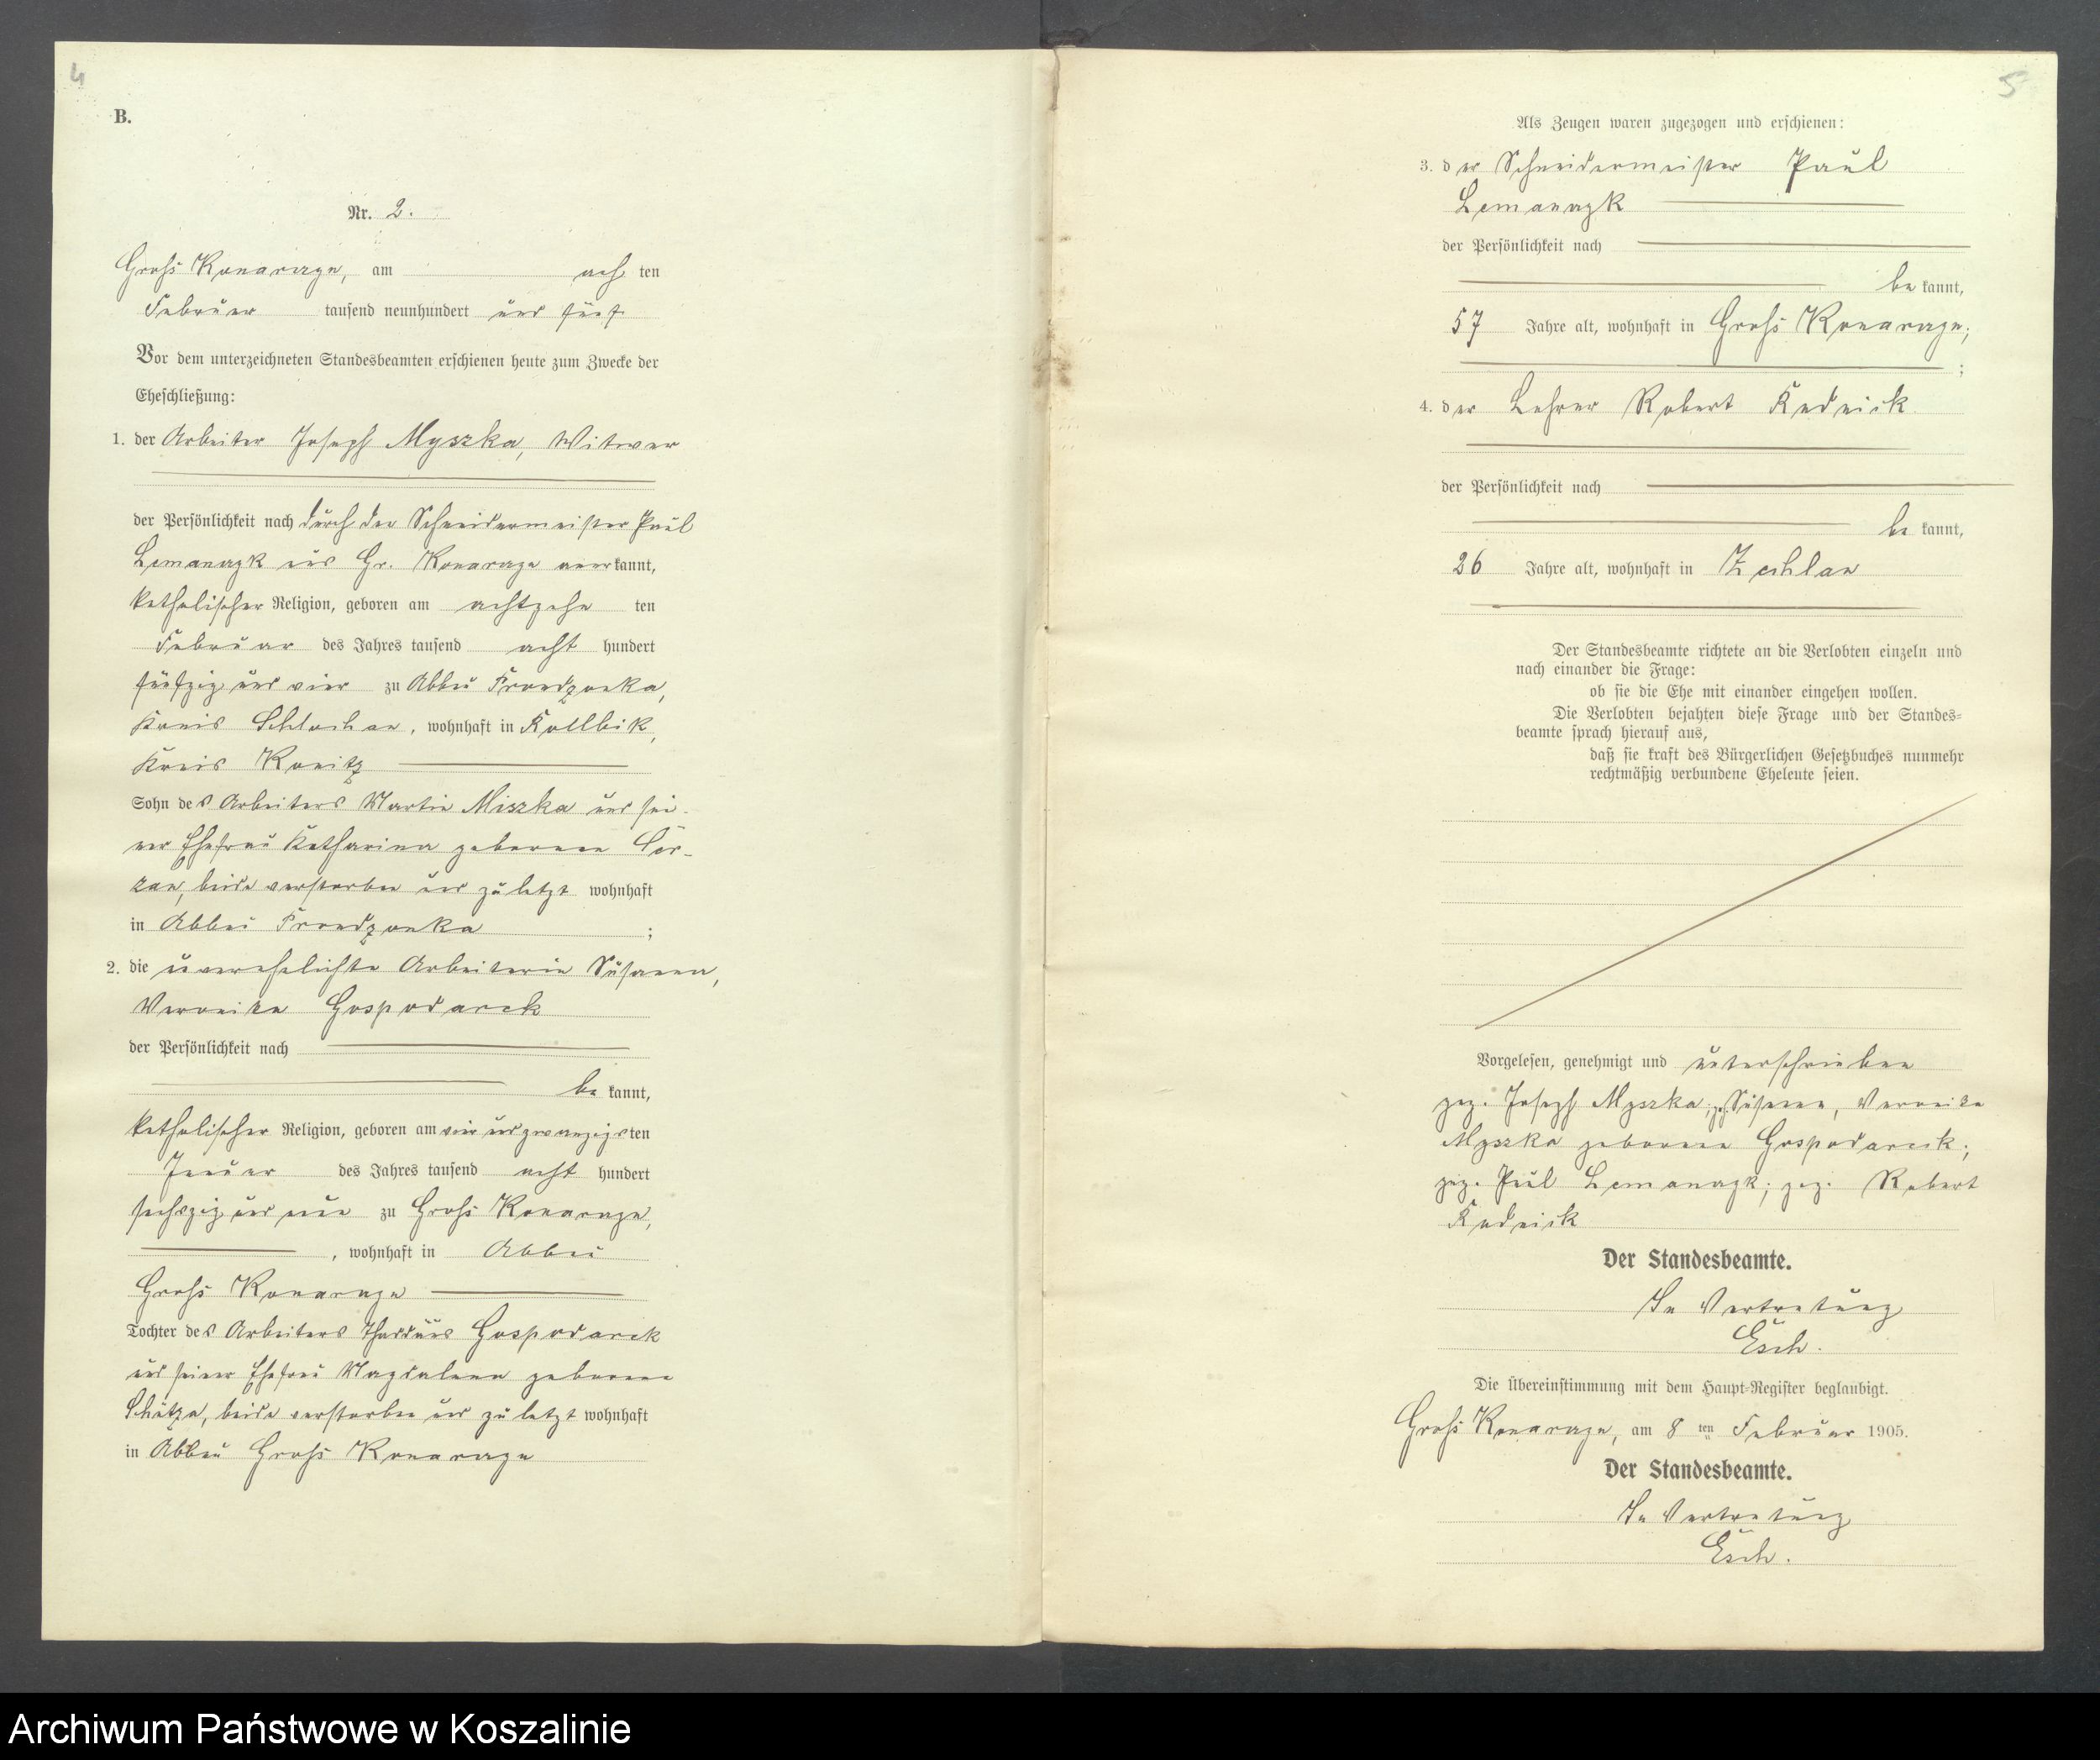 4
5
B.
Nr. 2.
Groß Konarczyn, am acht ten
Februar tausend neunhundert und fünf
Vor dem unterzeichneten Standesbeamten erschienen heute zum Zwecke der
Eheschließung:
1. der Arbeiter Joseph Myszka, Witwer
der Persönlichkeit nach durch den Schneidermeister Paul
Lemanczk aus Gr. Konarczyn anerkannt,
katholischer Religion, geboren am achtzehn ten
Februar des Jahres tausend acht hundert
fünfzig und vier zu Abbau Prondzonka,
Kreis Schlochau, wohnhaft in Kollbik,
Kreis Konitz
Sohn des Arbeiters Martin Miszka und sei-
ner Ehefrau Katharina geborenen
beide verstorben und zuletzt wohnhaft
in Abbau Prondzonka ;
2. die unverehelichte Arbeiterin Susanna,
Veronika Gospodarek
der Persönlichkeit nach
be kannt,
katholischer Religion, geboren am vier und zwanzigsten
Januar des Jahres tausend acht hundert
sechszig und neun zu Groß Konarczyn,
, wohnhaft in Abbau
Groß Konarczyn
Tochter des Arbeiters Thaddäus Gospodarek
und seiner Ehefrau Magdalena geborenen
beide verstorben und zuletzt wohnhaft
in Abbau Groß Konarczyn
Als Zeugen waren zugezogen und erschienen:
3. der Schneidermeister Paul
Lemanczk
der Persönlichkeit nach
be kannt,
57 Jahre alt, wohnhaft in Groß Konarczyn;
;
4. der Lehrer Robert Rudnick
der Persönlichkeit nach
be kannt,
26 Jahre alt, wohnhaft in Zechlau
Der Standesbeamte richtete an die Verlobten einzeln und
nach einander die Frage:
ob sie die Ehe mit einander eingehen wollen.
Die Verlobten bejahten diese Frage und der Standes=
beamte sprach hierauf aus,
daß sie kraft des Bürgerlichen Gesetzbuches nunmehr
rechtmäßig verbundene Eheleute seien.
Vorgelesen, genehmigt und unterschrieben
gez. Joseph Myszka, gez. Susanna, Veronika
Myszka geborene Gospodarek;
gez. Paul Lemanczk; gez. Robert
Rudnick
Der Standesbeamte.
In Vertretung
Esch.
Die Übereinstimmung mit dem Haupt=Register beglaubigt.
Groß Konarczyn, am 8 ten Februar 1905.
Der Standesbeamte.
In Vertretung
Esch.
Archiwum Państwowe w Koszalinie